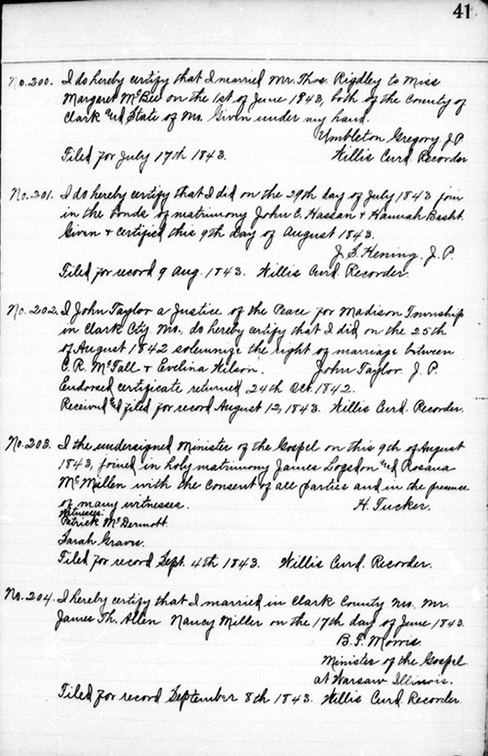 41
No. 200. I do hereby certify that I married Mr. Thos. Rigdley to Miss
Margaret McBee on the 1st of June 1843, both of the County of
Clark and State of Mo. Given under my hand.
Umbleton Gregory J.P.
Filed for July 17th 1843. Willis Curd. Recorder
No. 201. I do hereby certify that I did on the 29th day of July 1843 join
in the bonds of matrimony John C. Hassan & Hannah Basht.
Given & certified this 9th day of August 1843.
J. S. Hening, J. P.
Filed for record 9 Aug. 1843. Willis Curd. Recorder.
No. 202. I John Taylor a Justice of the Peace for Madison Township
in Clark Cty, Mo., do hereby certify that I did, on the 25th
of August 1842 solemnize the right of marriage between
C. R. McFall & Evelina Wilson. John Taylor J. P.
Endorsed certificate returned 24th Oct. 1842.
Received and filed for record August 12, 1843. Willis Curd. Recorder.
No. 203. I the undersigned Minister of the Gospel on this 9th of August
1843, joined in holy matrimony James Logsdon and Rosana
McMillen with the consent of all parties and in the presence
of many witnesses. H. Tucker.
Witnesses:
Patrick McDermott
Sarah Graves.
Filed for record Sept. 4th 1843. Willis Curd. Recorder.
No. 204. I hereby certify that I married in Clark County Mo. Mr.
James Th. Allen Nancy Miller on the 17th day of June 1843.
B. F. Morris
Minister of the Gospel
at Warsaw Illinois.
Filed for record September 8th 1843. Willis Curd. Recorder